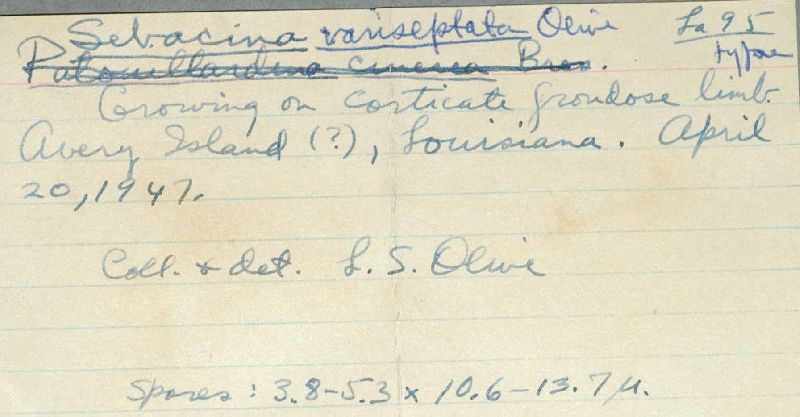 Sebacina variseptata Olive La 95
type
Patouillardina cinerea Bres.
Growing on corticate frondose limb.
Avery Island (?), Louisiana. April
20, 1947.
Coll. & det. L. S. Olive
Spores: 3.8-5.3 x 10.6-13.7 µ.